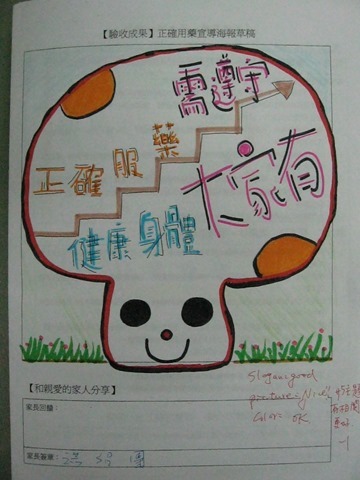 【驗收成果】正確用藥宣導海報草稿
需遵守
正確服藥
大家有
健康身體
【和親愛的家人分享】
家長回饋：
家長簽章：
Slogan=good
picture=Nice!
color= OK